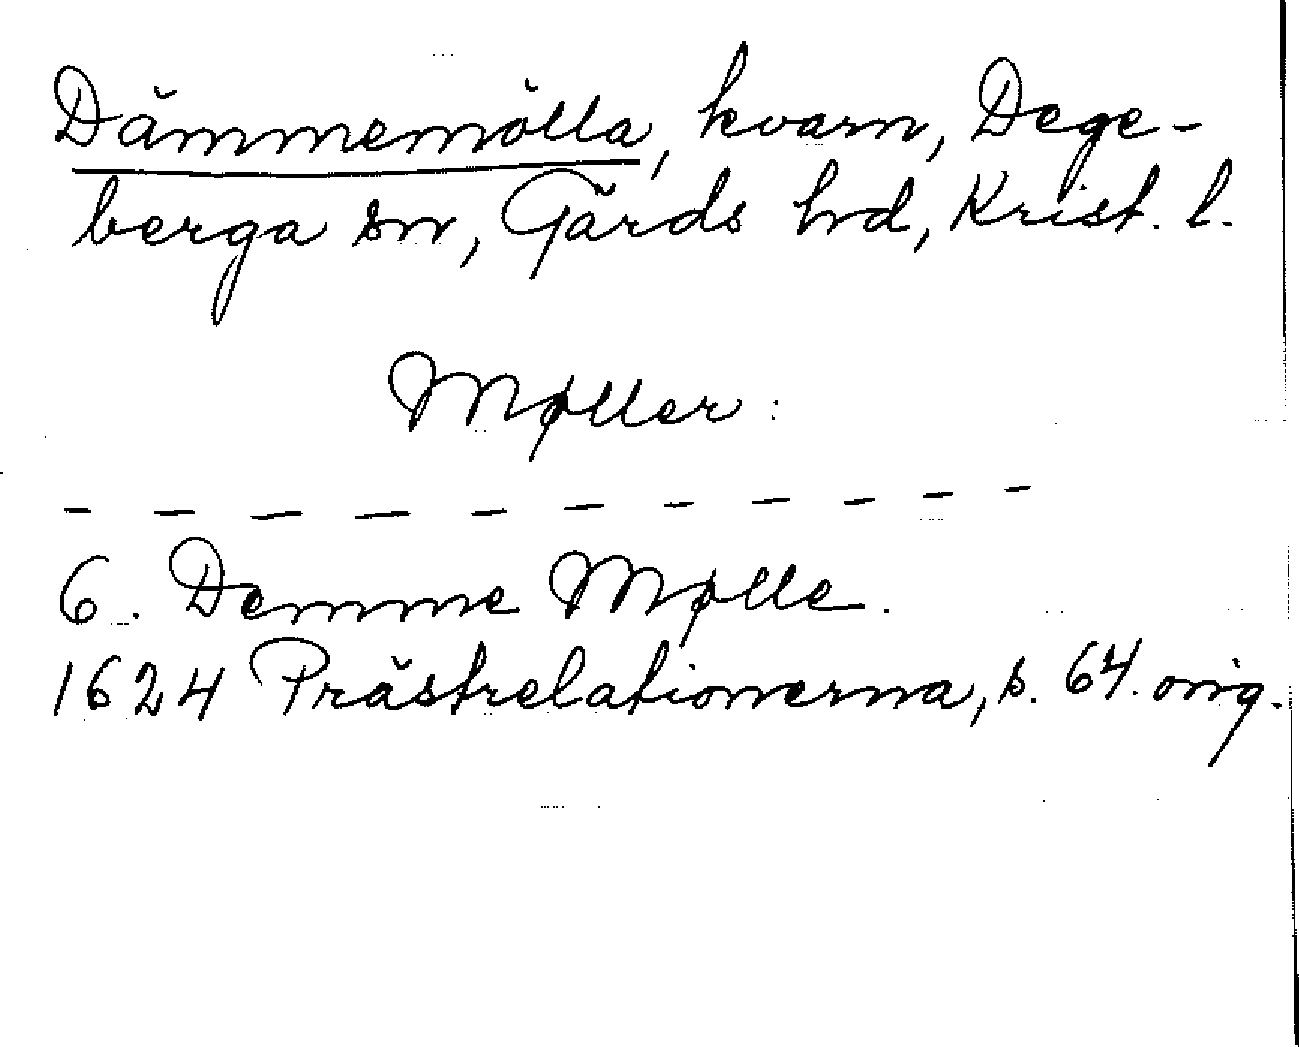 Dämmemölla, kvarn, Dege-
berga sn, Gärds hrd, Krist. l.
Møller:
– – – – – – – – – – –
6. Demme Mølle.
1624 Prästrelationerna, s. 64. orig.